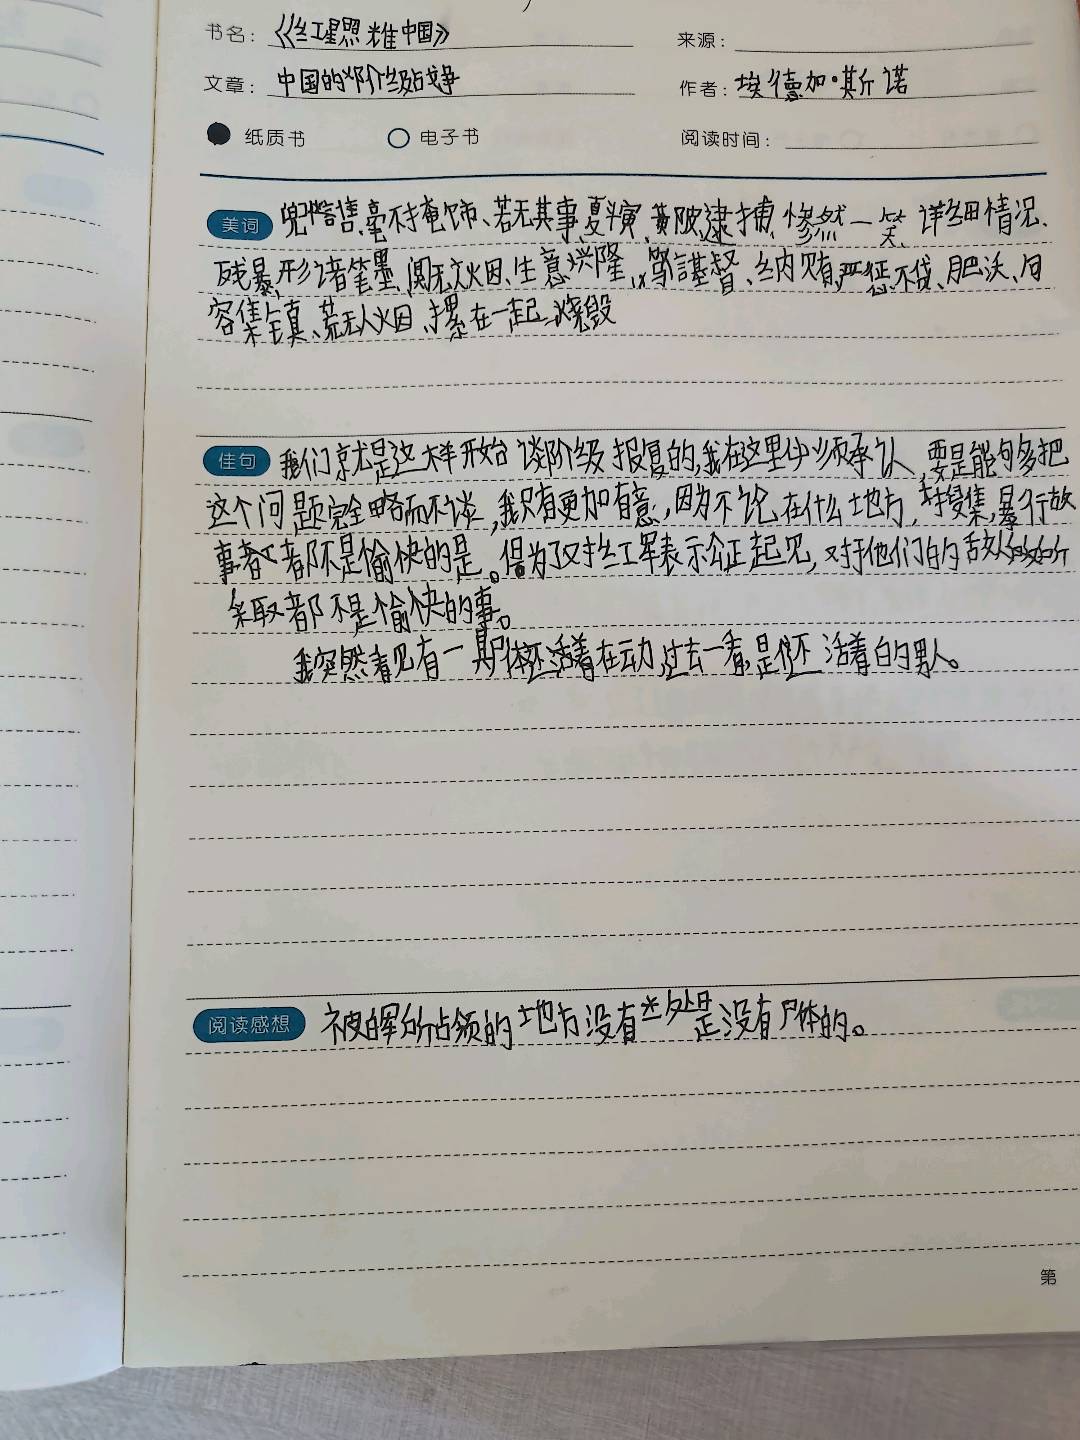 书名：《红星照耀中国》 来源：
文章：中国的阶级战争 作者：埃德加·斯诺
纸质书 电子书 阅读时间：
美词 兜售、毫不掩饰、若无其事、夏斗寅、黄陂、逮捕、惨然一笑、详细情况、
残暴、形诸笔墨、阒无火因、生意兴隆、笃信基督、纳贿、严惩不贷、肥沃、
容集镇、荒无人火因、摞在一起、烧毁
佳句 我们就是这样开始谈阶级报复的，我在这里必须承认，要是能够多把
这个问题完全略而不谈，我只有更加有意，因为不论在什么地方，搜集暴行故
事者都不是愉快的是。但为了对红军表示公正起见，对于他们的敌人所
采取都不是愉快的事。
我突然看见有一具尸体还活着在动，过去一看，是个还活着的男人。
阅读感想 被白军所占领的地方没有一处是没有尸体的。
第